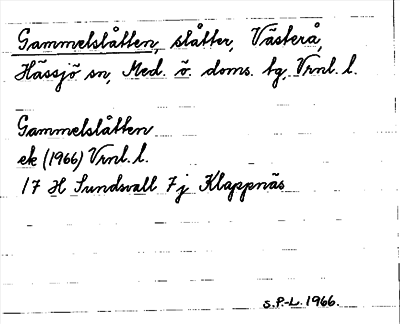 Gammelslåtten, slåtter, Västerå,
Hässjö sn, Med. ö. doms. bg, Vrnl. l.
Gammelslåtten
ek (1966) Vrnl. l.
17 H Sundsvall 7j Klappnäs
S.P.-L. 1966.